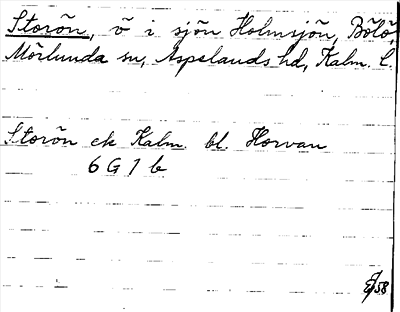 Storön, ö i sjön Holmsjön, Bölö,
Mörlunda sn, Aspelands hd, Kalm. l.
Storön ek Kalm. bl. Horvan
6 G 1 b